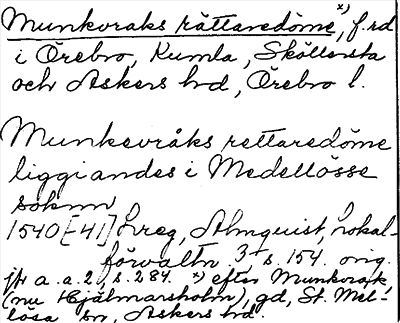 Munkvraks rättaredöme x), f.rd
i Örebro, Kumla, Sköllersta
och Askers hd, Örebro l.
Munkevråks rettaredöme
liggiandes i Medellösse
soknn
1540[-41] Lreg, Almquist, Lokal-
förvaltn. 3 s. 154. orig.
jfr a. a. 2, s. 284. x) efter Munkvrak
(nu Hjälmarsholm), gd, St. Mel-
lösa sn, Askers hd.